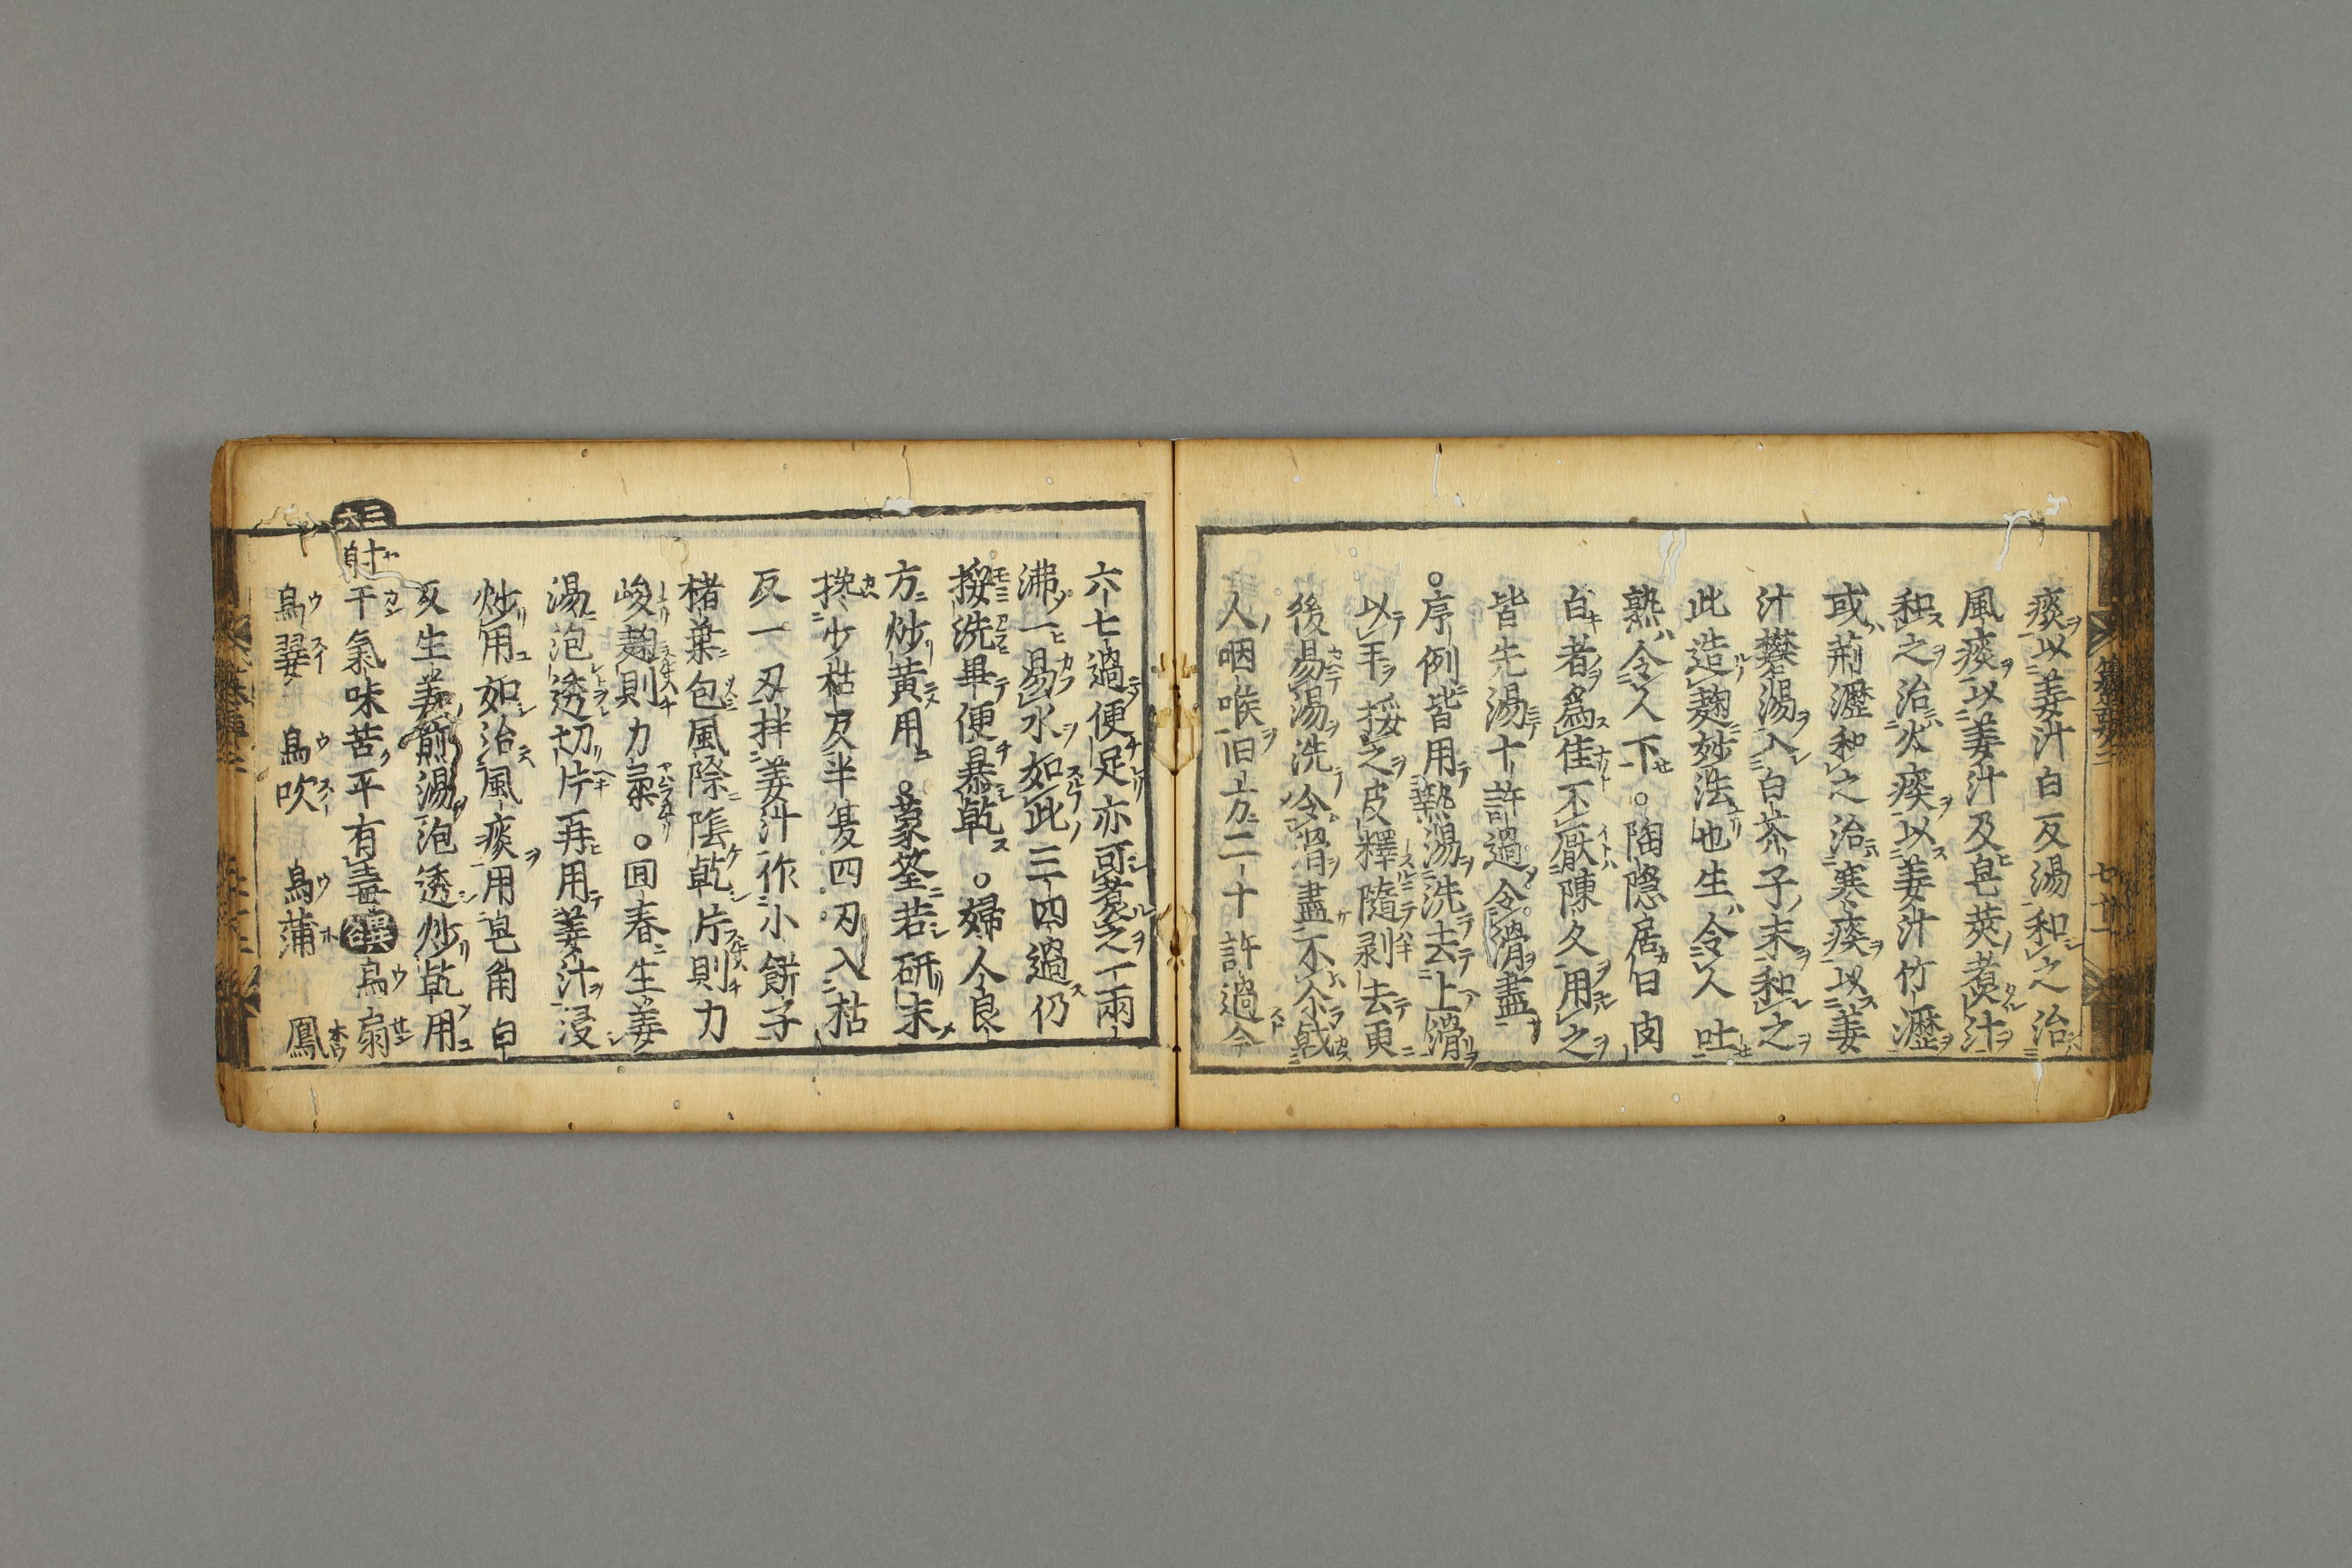 痰以姜汁白反湯和之治
風痰以姜汁及皂莢煮汁
和之治火痰以姜汁竹瀝
或荊瀝和之治寒痰以姜
汁礬湯入白芥子末和之
此造麹妙法也生令人吐
熟令人下。陶隠居曰肉
白者為佳不厭陳久用之
皆先湯十許過令滑盡
○序例皆用熱湯洗去上滑
以手挼之皮釋隨剥去更
後易湯洗令滑盡不尒戟
人咽喉旧方二十許過今
六七過便足亦可煮之一兩
沸一易水如此三四過仍
挼洗畢便暴乾。婦人良
方炒黄用。蒙筌若研末
攙少枯反半斤四刃入枯
反一刃拌姜汁作小餅子
楮葉包風際陰乾片則力
峻麹則力柔。囬春生姜
湯泡透切片再用姜汁浸
炒用如治風痰用皂角白
反生姜煎湯泡透炒乾用
射干氣味苦平有毒 烏扇
烏翣 烏吹 烏蒲 鳳